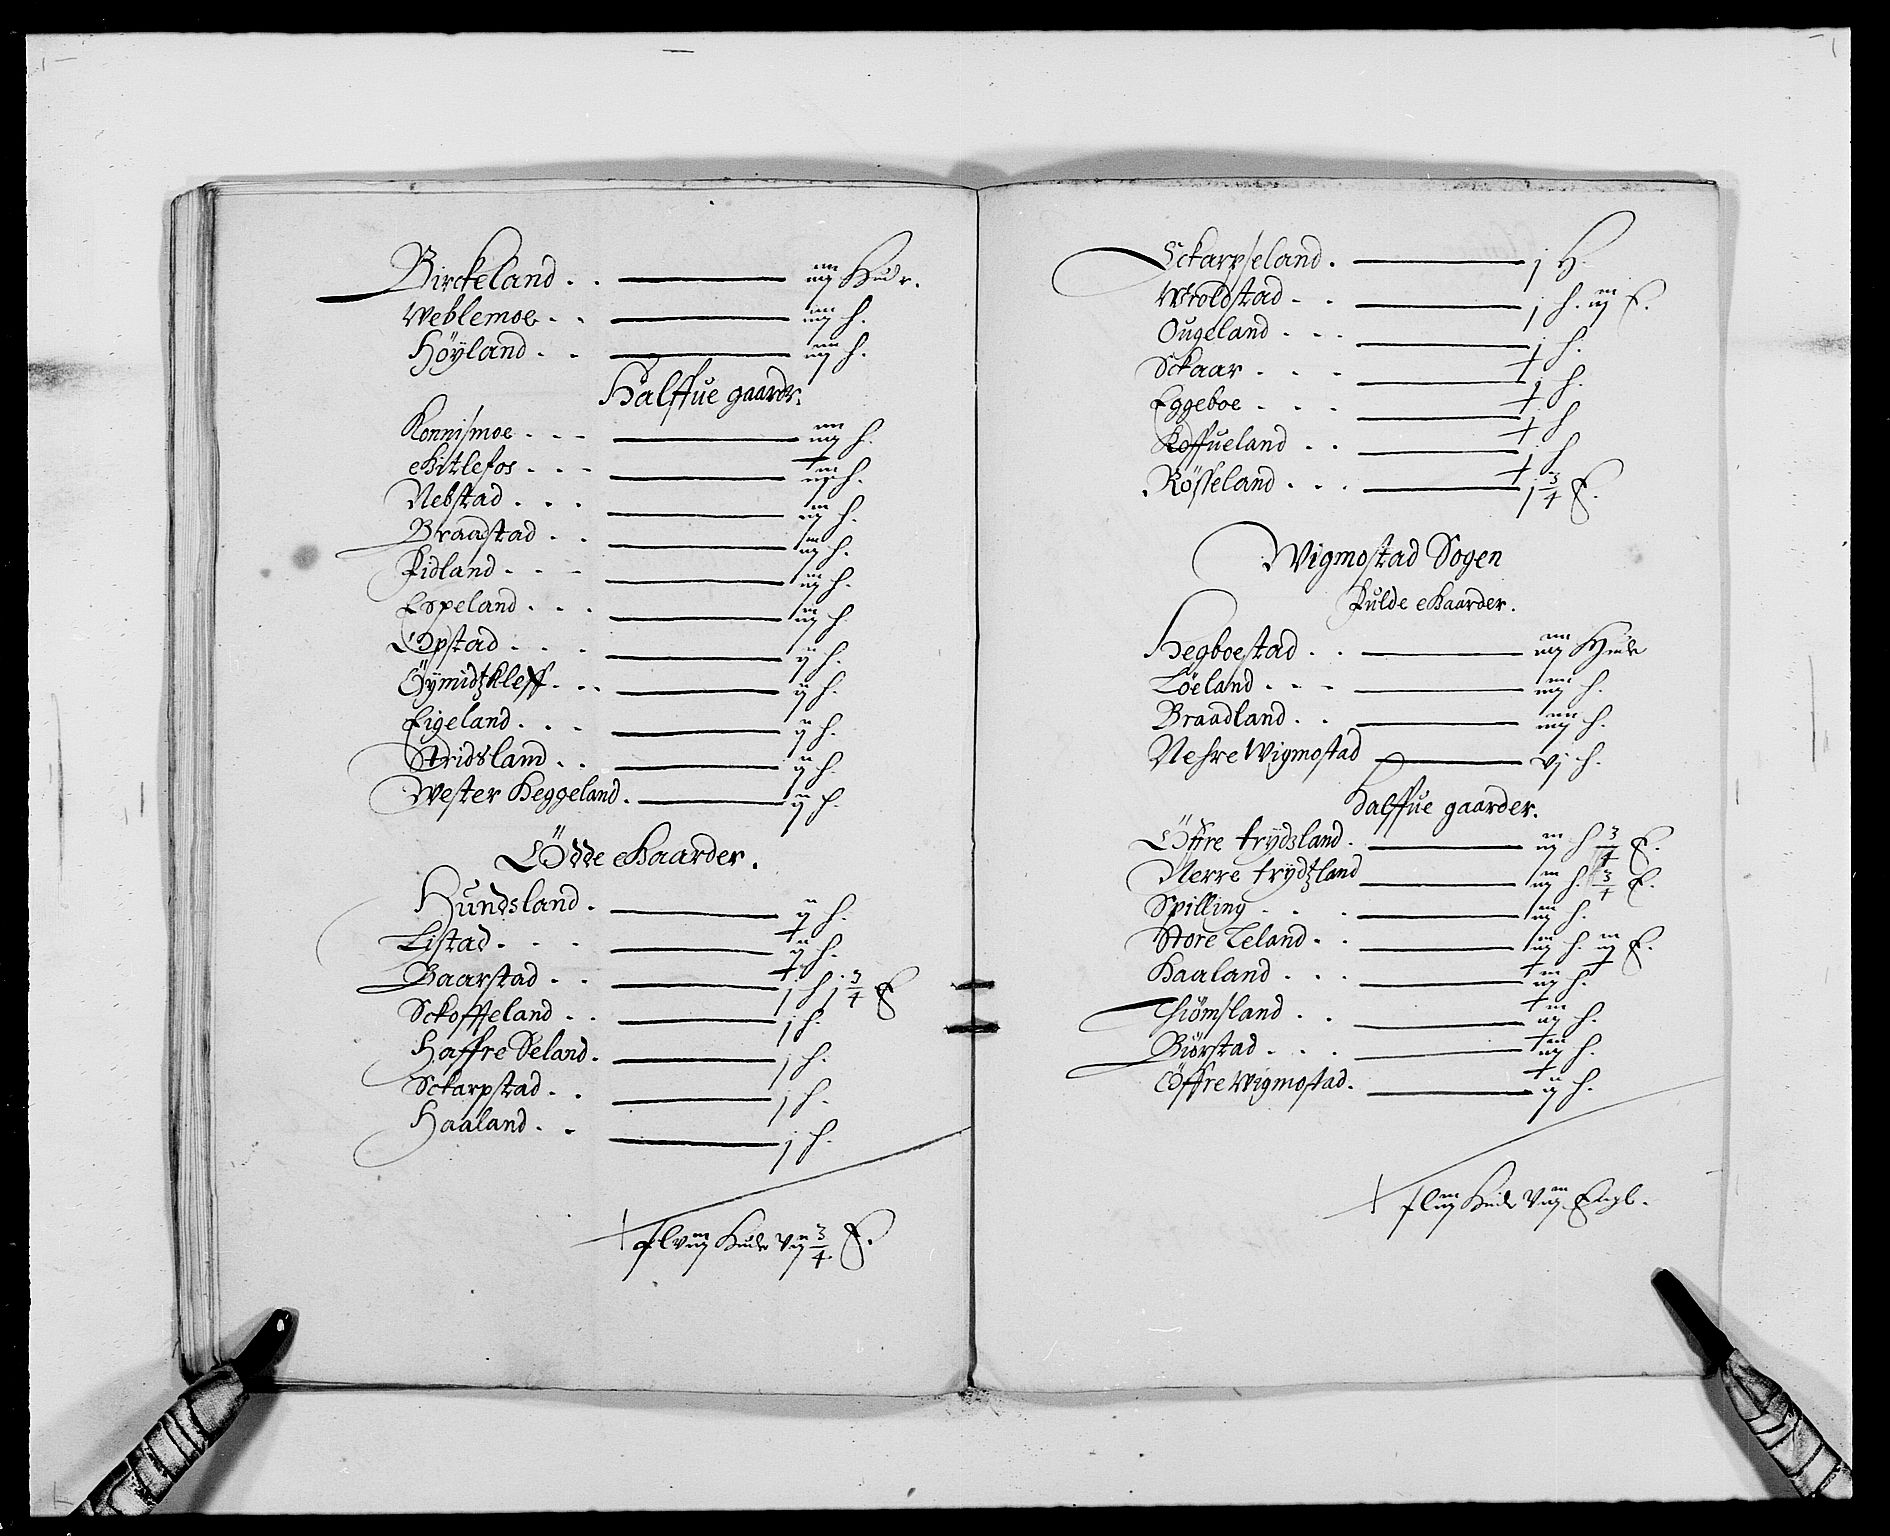 Birckeland . . iiij Hudr.
Weblemoe . . iiij h.
Höyland . . iiij h.
Halffue gaardr.
Konnismoe . . . iiij h.
Kitlefos . . . iij h.
Nebstad . . . iij h.
Braadstad . . iij h.
Fidland . . . iij h.
Espeland . . . iij h
Opstad . . . ij h.
Öymidtzkleff . . . ij h.
Eigeland . . . ij h.
Stridsland . . ij h.
Wester Heggeland . ij h.
Ödde Gaarder .
Hundsland . ij h.
Listad . . . ij h.
Baarstad . . j h j 3/4 E
Sckoffteland . . j h.
Haffre Seland . j h.
Sckarpstad . . j h.
Haaland . . j h.
lviij Hude vij 3/4 E.
Sckarpseland . j H.
Wroldstad . . j h. iij E.
Ougeland . . . j h.
Sckaar . . . j h.
Eggeboe . . . j h
Koffueland . . j h
Rösseland . . . j 3/4 E.
Wigmostad Sogen
Fulde Gaarder .
Hegboestad . . iiij Hude
Löeland . . . iiij h.
Braadland . . iiij h.
Nehre Wigmostad vj h.
Halffue gaarder .
Öffre trydsland . iij h 3/4 E.
Nerre trydtzland iij h. 3/4 E.
Spilling . . . iij h.
Store Leland . . iij h. iij E.
Haaland . . . iij h.
Thiömsland . . iij h.
Biörstad . . . iij h.
Öffre Wigmostad . ij h.
liij Hude viij Engl.